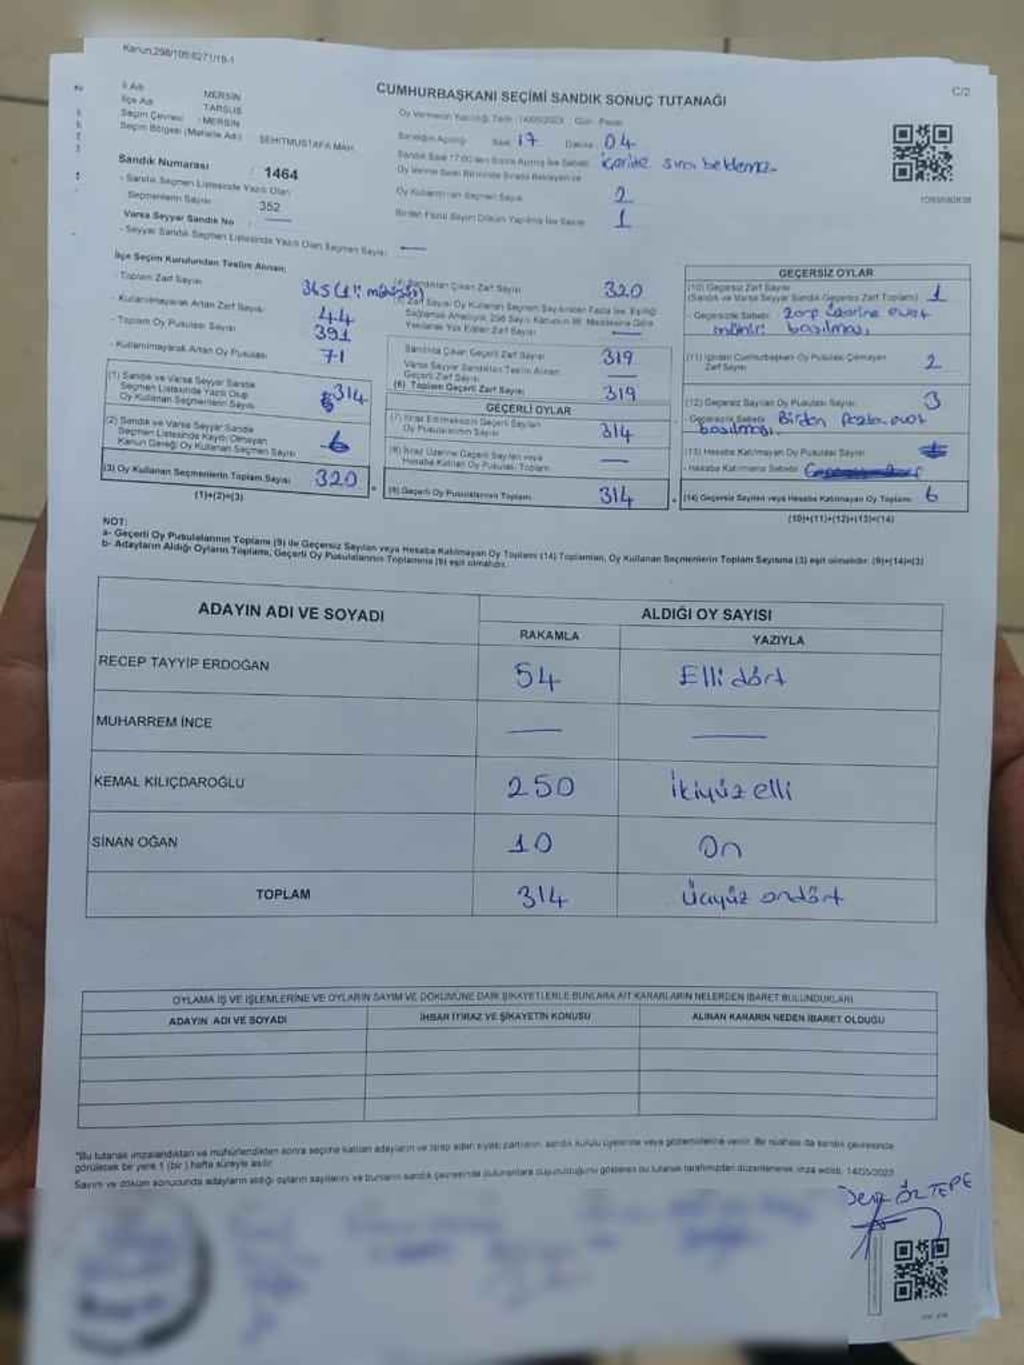 Karun,298/105-6271/18-1
CUMHURBAŞKANI SEÇİMİ SANDIK SONUÇ TUTANAĞI
C/2
İl Adı MERSİN
İlçe Adı TARSUS
Seçim Çevresi : MERSİN
Seçim Bölgesi (Mahalle Adı) ŞEHİTMUSTAFA MAH.
Sandık Numarası : 1464
- Sandık Seçmen Listesinde Yazılı Olan
Seçmenlerin Sayısı 352
Varsa Seyyar Sandık No : —
- Seyyar Sandık Seçmen Listesinde Yazılı Olan Seçmen Sayısı: —
Oy Vermenin Yapıldığı Tarih : 14/05/2023 Gün : Pazar
Sandığın Açılışı Saat 17 Dakika 04
Sandık Saat 17:00'den Sonra Açılmış İse Sebebi içeride sıra bekleme
Oy Verme Saati Bitiminde Sırada Bekleyen ve
Oy Kullandırılan Seçmen Sayısı 2
Birden Fazla Sayım Döküm Yapılmış İse Sayısı 1
İlçe Seçim Kurulundan Teslim Alınan;
- Toplam Zarf Sayısı 365
- Kullanılmayarak Artan Zarf Sayısı 44
- Toplam Oy Pusulası Sayısı 391
- Kullanılmayarak Artan Oy Pusulası 71
(1) Sandık ve Varsa Seyyar Sandık
Seçmen Listesinde Yazılı Olup
Oy Kullanan Seçmenlerin Sayısı 314
(2) Sandık ve Varsa Seyyar Sandık
Seçmen Listesinde Kayıtlı Olmayan
Kanun Gereği Oy Kullanan Seçmen Sayısı 6
(3) Oy Kullanan Seçmenlerin Toplam Sayısı 320
(1)+(2)=(3)
Sandıktan Çıkan Zarf Sayısı 320
Zarf Sayısı Oy Kullanan Seçmen Sayısından Fazla İse, Eşitliği
Sağlamak Amacıyla, 298 Sayılı Kanunun 98. Maddesine Göre
Yakılarak Yok Edilen Zarf Sayısı —
Sandıkta Çıkan Geçerli Zarf Sayısı 319
Varsa Seyyar Sandıktan Teslim Alınan
Geçerli Zarf Sayısı —
(6) Toplam Geçerli Zarf Sayısı 319
GEÇERLİ OYLAR
(7) İtiraz Edilmeksizin Geçerli Sayılan
Oy Pusulalarının Sayısı 314
(8) İtiraz Üzerine Geçerli Sayılan veya
Hesaba Katılan Oy Pusulası Toplamı —
(9) Geçerli Oy Pusulalarının Toplamı 314
GEÇERSİZ OYLAR
(10) Geçersiz Zarf Sayısı
(Sandık ve Varsa Seyyar Sandık Geçersiz Zarf Toplamı) 1
- Geçersizlik Sebebi: zarp üzerine evet
mührü basılması
(11) İçinden Cumhurbaşkanı Oy Pusulası Çıkmayan
Zarf Sayısı 2
(12) Geçersiz Sayılan Oy Pusulası Sayısı 3
- Geçersizlik Sebebi: Birden fazla evet
basılması
(13) Hesaba Katılmayan Oy Pusulası Sayısı
- Hesaba Katılmama Sebebi:
(14) Geçersiz Sayılan veya Hesaba Katılmayan Oy Toplamı 6
(10)+(11)+(12)+(13)=(14)
NOT:
a- Geçerli Oy Pusulalarının Toplamı (9) ile Geçersiz Sayılan veya Hesaba Katılmayan Oy Toplamı (14) Toplamları, Oy Kullanan Seçmenlerin Toplam Sayısına (3) eşit olmalıdır. (9)+(14)=(3)
b- Adayların Aldığı Oyların Toplamı, Geçerli Oy Pusulalarının Toplamına (9) eşit olmalıdır.
ADAYIN ADI VE SOYADI
ALDIĞI OY SAYISI
RAKAMLA YAZIYLA
RECEP TAYYİP ERDOĞAN 54 Elli dört
MUHARREM İNCE — —
KEMAL KILIÇDAROĞLU 250 İkiyüz elli
SİNAN OĞAN 10 On
TOPLAM 314 Üçyüz ondört
OYLAMA İŞ VE İŞLEMLERİNE VE OYLARIN SAYIM VE DÖKÜMÜNE DAİR ŞİKAYETLERLE BUNLARA AİT KARARLARIN NELERDEN İBARET BULUNDUKLARI
ADAYIN ADI VE SOYADI İHBAR İTİRAZ VE ŞİKAYETİN KONUSU ALINAN KARARIN NEDEN İBARET OLDUĞU
*Bu tutanak imzalandıktan ve mühürlendikten sonra seçime katılan adayların ve talep eden siyasi partilerin, sandık kurulu üyelerine veya gözlemcilerine verilir. Bir nüshası da sandık çevresinde
görülecek bir yere 1 (bir) hafta süreyle asılır.
Sayım ve döküm sonucunda adayların aldığı oyların sayılarını ve bunların sandık çevresinde bulunanlara duyurulduğunu gösteren bu tutanak tarafımızdan düzenlenerek imza edildi. 14/05/2023
ÖZTEPE